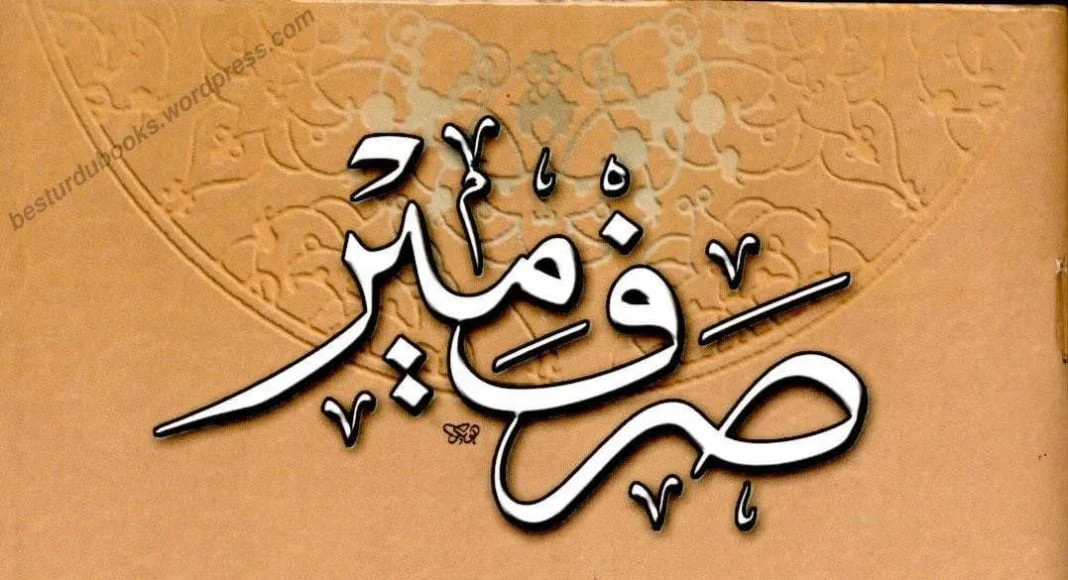 besturdubooks.wordpress.com
صرف میر